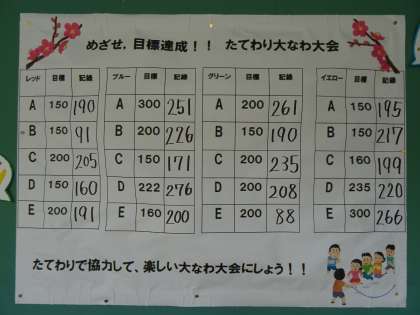 めざせ,目標達成!! たてわり大なわ大会
レッド 目標 記録 ブルー 目標 記録 グリーン 目標 記録 イエロー 目標 記録
A 150 190 A 300 251 A 200 261 A 150 195
B 150 91 B 200 226 B 150 190 B 150 217
C 200 205 C 150 171 C 200 235 C 160 199
D 150 160 D 222 276 D 200 208 D 235 220
E 200 191 E 160 200 E 200 88 E 300 266
たてわりで協力して、楽しい大なわ大会にしよう!!